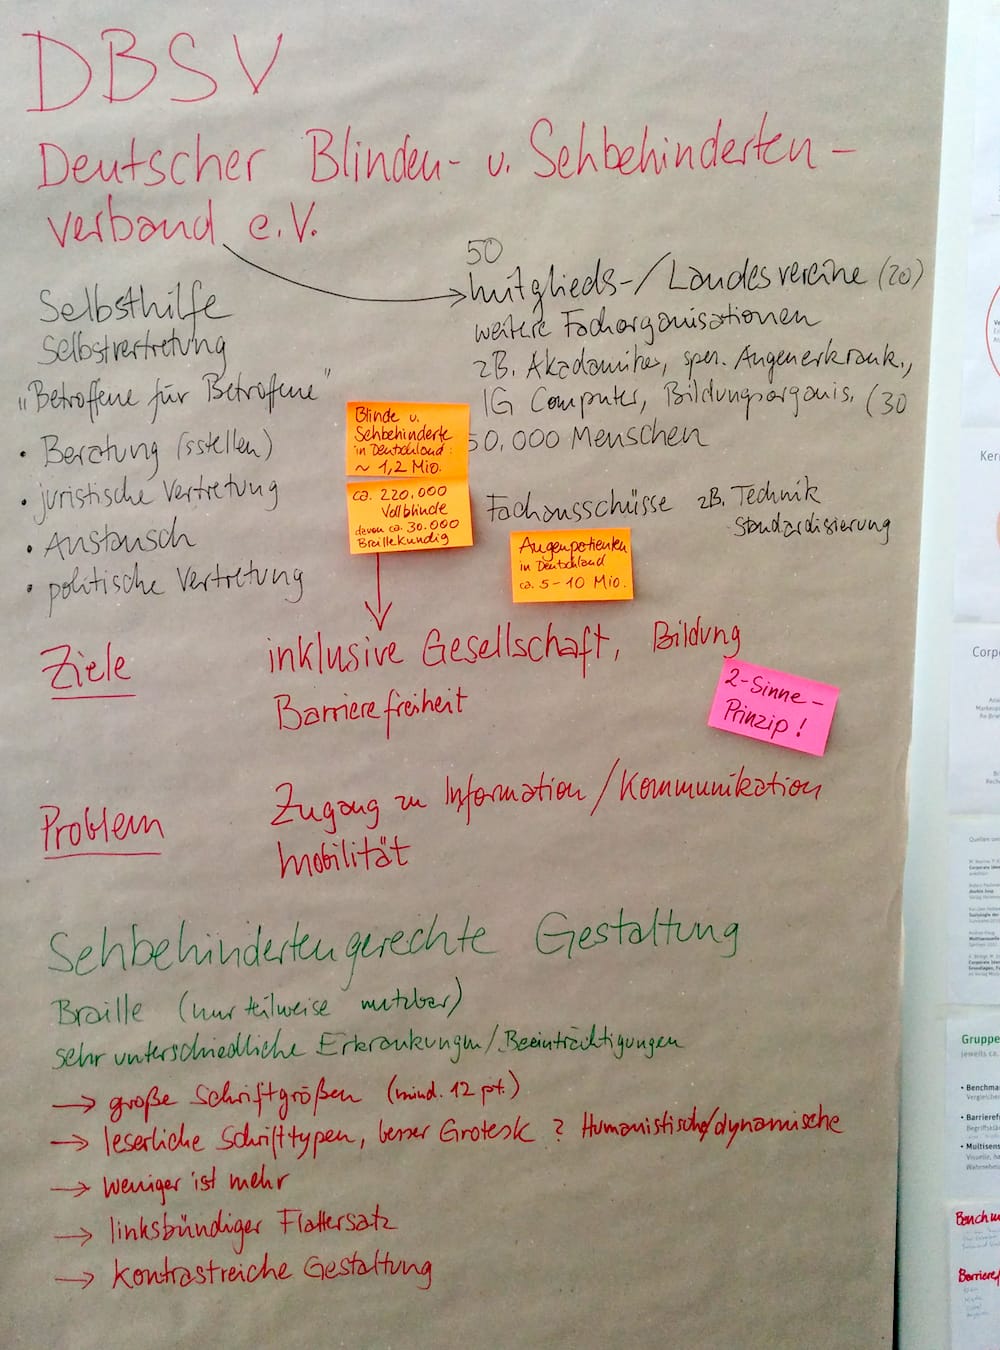 DBSV
Deutscher Blinden- u. Sehbehinderten-
verband e.V.
50
Mitglieds-/Landesvereine (20)
weitere Fachorganisationen
zB. Akademiker, spez. Augenerkrank.,
IG Computer, Bildungsorganis. (30
50.000 Menschen
Fachausschüsse zB. Technik
Standardisierung
Selbsthilfe
Selbstvertretung
„Betroffene für Betroffene"
• Beratung (sstellen)
• juristische Vertretung
• Austausch
• politische Vertretung
Blinde u.
Sehbehinderte
in Deutschland:
~ 1,2 Mio.
ca. 220.000
Vollblinde
davon ca. 30.000
Braillekundig
Augenpatienten
in Deutschland
ca. 5-10 Mio.
Ziele
inklusive Gesellschaft, Bildung
Barrierefreiheit
2-Sinne-
Prinzip!
Problem
Zugang zu Information/Kommunikation
Mobilität
Sehbehindertengerechte Gestaltung
Braille (nur teilweise nutzbar)
sehr unterschiedliche Erkrankungen/Beeinträchtigungen
→ große Schriftgrößen (mind. 12 pt.)
→ leserliche Schrifttypen, besser Grotesk ? Humanistische/dynamische
→ weniger ist mehr
→ linksbündiger Flattersatz
→ kontrastreiche Gestaltung
Ker
Corpo
Quellen un
Gruppe
jeweils ca.
• Benchma
Vergleiche
• Barrieref
Begriffsklä
• Multisens
Visuelle, ha
Wahrnehm
Benchm
Barriere